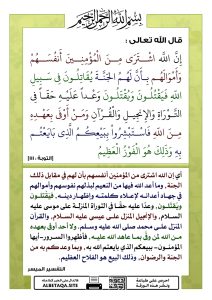 بِسْمِ اللَّهِ الرَّحْمَنِ الرَّحِيمِ
قال الله تعالى :
إِنَّ اللَّهَ اشْتَرَى مِنَ الْمُؤْمِنِينَ أَنْفُسَهُمْ
وَأَمْوَالَهُم بِأَنَّ لَهُمُ الْجَنَّةَ يُقَاتِلُونَ فِي سَبِيلِ
اللَّهِ فَيَقْتُلُونَ وَيُقْتَلُونَ وَعْداً عَلَيْهِ حَقّاً فِي
التَّوْرَاةِ وَالإِنجِيلِ وَالْقُرْآنِ وَمَنْ أَوْفَى بِعَهْدِهِ
مِنَ اللَّهِ فَاسْتَبْشِرُوا بِبَيْعِكُمُ الَّذِي بَايَعْتُم
بِهِ وَذَلِكَ هُوَ الْفَوْزُ الْعَظِيمُ
[التوبة : ١١١]
أي إن الله اشترى من المؤمنين أنفسهم بأن لهم في مقابل ذلك
الجنة , وما أعد الله فيها من النعيم لبذلهم نفوسهم وأموالهم
في جهاد أعدائه لإعلاء كلمته وإظهار دينه , فيَقْتلون
ويُقتلون , وعدًا عليه حقًا في التوراة المنزلة على موسى عليه
السلام , والإنجيل المنزل على عيسى عليه السلام , والقرآن
المنزل على محمد صلى الله عليه وسلم. ولا أحد أوفى بعهده
من الله لمن وفى بما عاهد الله عليه, فأظهروا السرور-أيها
المؤمنون- ببيعكم الذي بايعتم الله به, وبما وعدكم به من
الجنة والرضوان, وذلك البيع هو الفلاح العظيم.
التفسير الميسر
ALBETAQA.SITE